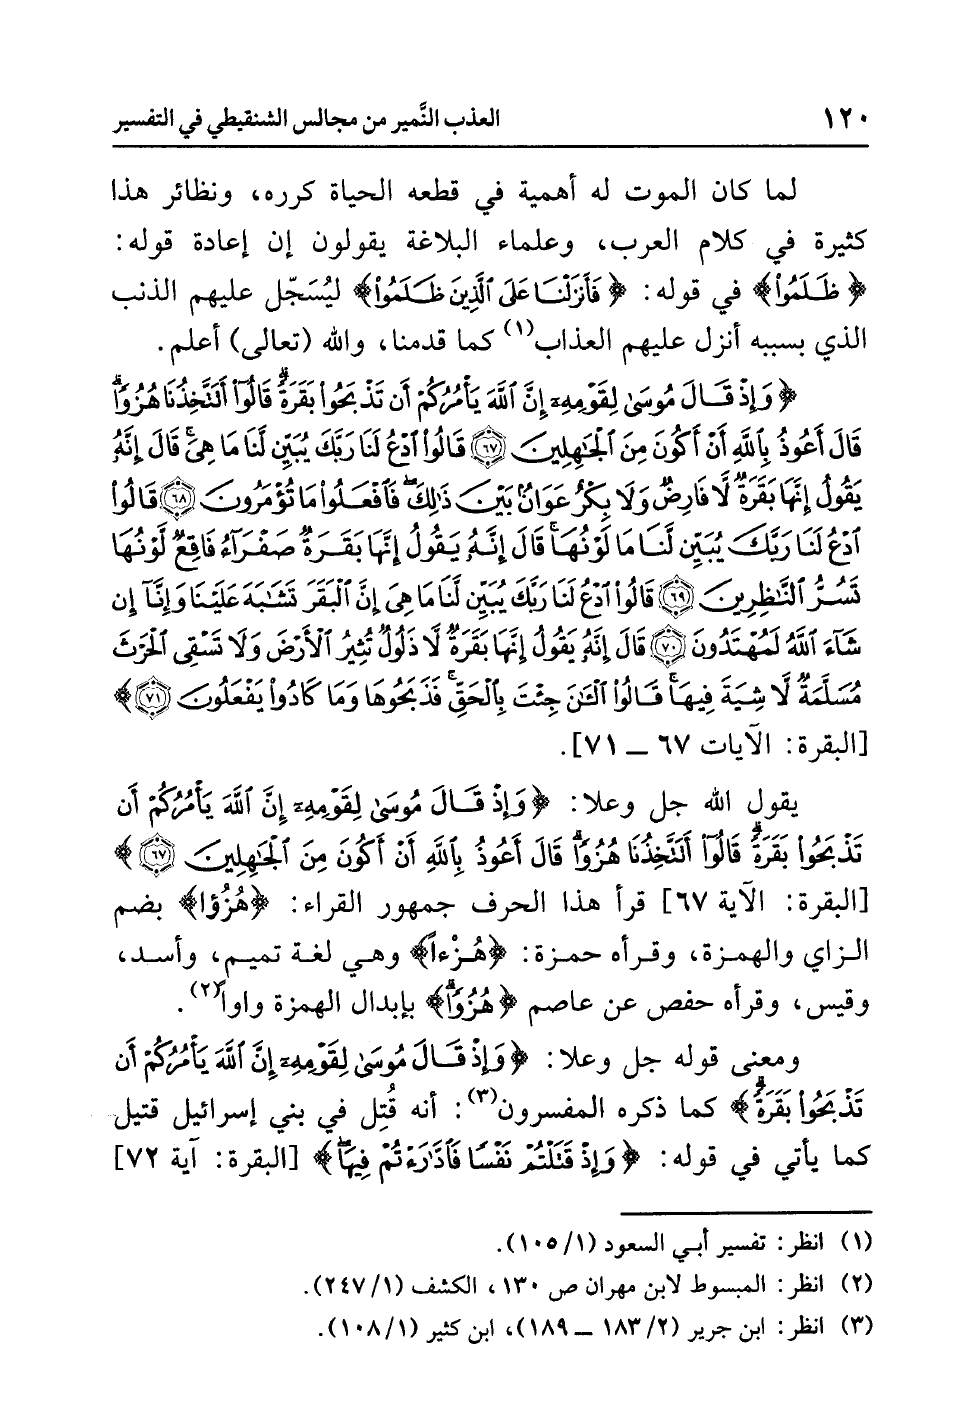 ١٢٠ العذب النَّمير من مجالس الشنقيطي في التفسير
لما كان الموت له أهمية في قطعه الحياة كرره، ونظائر هذا
كثيرة في كلام العرب، وعلماء البلاغة يقولون إن إعادة قوله:
﴿ظَلَمُواْ﴾ في قوله: ﴿فَأَنزَلْنَا عَلَى ٱلَّذِينَ ظَلَمُواْ﴾ ليُسَجّل عليهم الذنب
الذي بسببه أنزل عليهم العذاب(١) كما قدمنا، والله (تعالى) أعلم.
﴿وَإِذْ قَالَ مُوسَىٰ لِقَوْمِهِۦٓ إِنَّ ٱللَّهَ يَأْمُرُكُمْ أَن تَذْبَحُواْ بَقَرَةً ۖ قَالُوٓاْ أَتَتَّخِذُنَا هُزُوًا ۖ
قَالَ أَعُوذُ بِٱللَّهِ أَنْ أَكُونَ مِنَ ٱلْجَٰهِلِينَ ٦٧ قَالُواْ ٱدْعُ لَنَا رَبَّكَ يُبَيِّن لَّنَا مَا هِىَ ۚ قَالَ إِنَّهُۥ
يَقُولُ إِنَّهَا بَقَرَةٌ لَّا فَارِضٌ وَلَا بِكْرٌ عَوَانٌۢ بَيْنَ ذَٰلِكَ ۖ فَٱفْعَلُواْ مَا تُؤْمَرُونَ ٦٨ قَالُواْ
ٱدْعُ لَنَا رَبَّكَ يُبَيِّن لَّنَا مَا لَوْنُهَا ۚ قَالَ إِنَّهُۥ يَقُولُ إِنَّهَا بَقَرَةٌ صَفْرَآءُ فَاقِعٌ لَّوْنُهَا
تَسُرُّ ٱلنَّٰظِرِينَ ٦٩ قَالُواْ ٱدْعُ لَنَا رَبَّكَ يُبَيِّن لَّنَا مَا هِىَ إِنَّ ٱلْبَقَرَ تَشَٰبَهَ عَلَيْنَا وَإِنَّآ إِن
شَآءَ ٱللَّهُ لَمُهْتَدُونَ ٧٠ قَالَ إِنَّهُۥ يَقُولُ إِنَّهَا بَقَرَةٌ لَّا ذَلُولٌ تُثِيرُ ٱلْأَرْضَ وَلَا تَسْقِى ٱلْحَرْثَ
مُسَلَّمَةٌ لَّا شِيَةَ فِيهَا ۚ قَالُواْ ٱلْـَٰٔنَ جِئْتَ بِٱلْحَقِّ ۚ فَذَبَحُوهَا وَمَا كَادُواْ يَفْعَلُونَ ٧١﴾
[البقرة: الآيات ٦٧ ــ ٧١].
يقول الله جل وعلا: ﴿وَإِذْ قَالَ مُوسَىٰ لِقَوْمِهِۦٓ إِنَّ ٱللَّهَ يَأْمُرُكُمْ أَن
تَذْبَحُواْ بَقَرَةً ۖ قَالُوٓاْ أَتَتَّخِذُنَا هُزُوًا ۖ قَالَ أَعُوذُ بِٱللَّهِ أَنْ أَكُونَ مِنَ ٱلْجَٰهِلِينَ ٦٧﴾
[البقرة: الآية ٦٧] قرأ هذا الحرف جمهور القراء: ﴿هُزُؤا﴾ بضم
الزاي والهمزة، وقرأه حمزة: ﴿هُزْءاً﴾ وهي لغة تميم، وأسد،
وقيس، وقرأه حفص عن عاصم ﴿هُزُوًا ۖ﴾ بإبدال الهمزة واواً(٢).
ومعنى قوله جل وعلا: ﴿وَإِذْ قَالَ مُوسَىٰ لِقَوْمِهِۦٓ إِنَّ ٱللَّهَ يَأْمُرُكُمْ أَن
تَذْبَحُواْ بَقَرَةً ۖ﴾ كما ذكره المفسرون(٣): أنه قُتِل في بني إسرائيل قتيل
كما يأتي في قوله: ﴿وَإِذْ قَتَلْتُمْ نَفْسًا فَٱدَّٰرَْٰٔتُمْ فِيهَا ۖ﴾ [البقرة: آية ٧٢]
(١) انظر: تفسير أبي السعود (١/١٠٥).
(٢) انظر: المبسوط لابن مهران ص ١٣٠، الكشف (١/٢٤٧).
(٣) انظر: ابن جرير (٢/١٨٣ ــ ١٨٩)، ابن كثير (١/١٠٨).